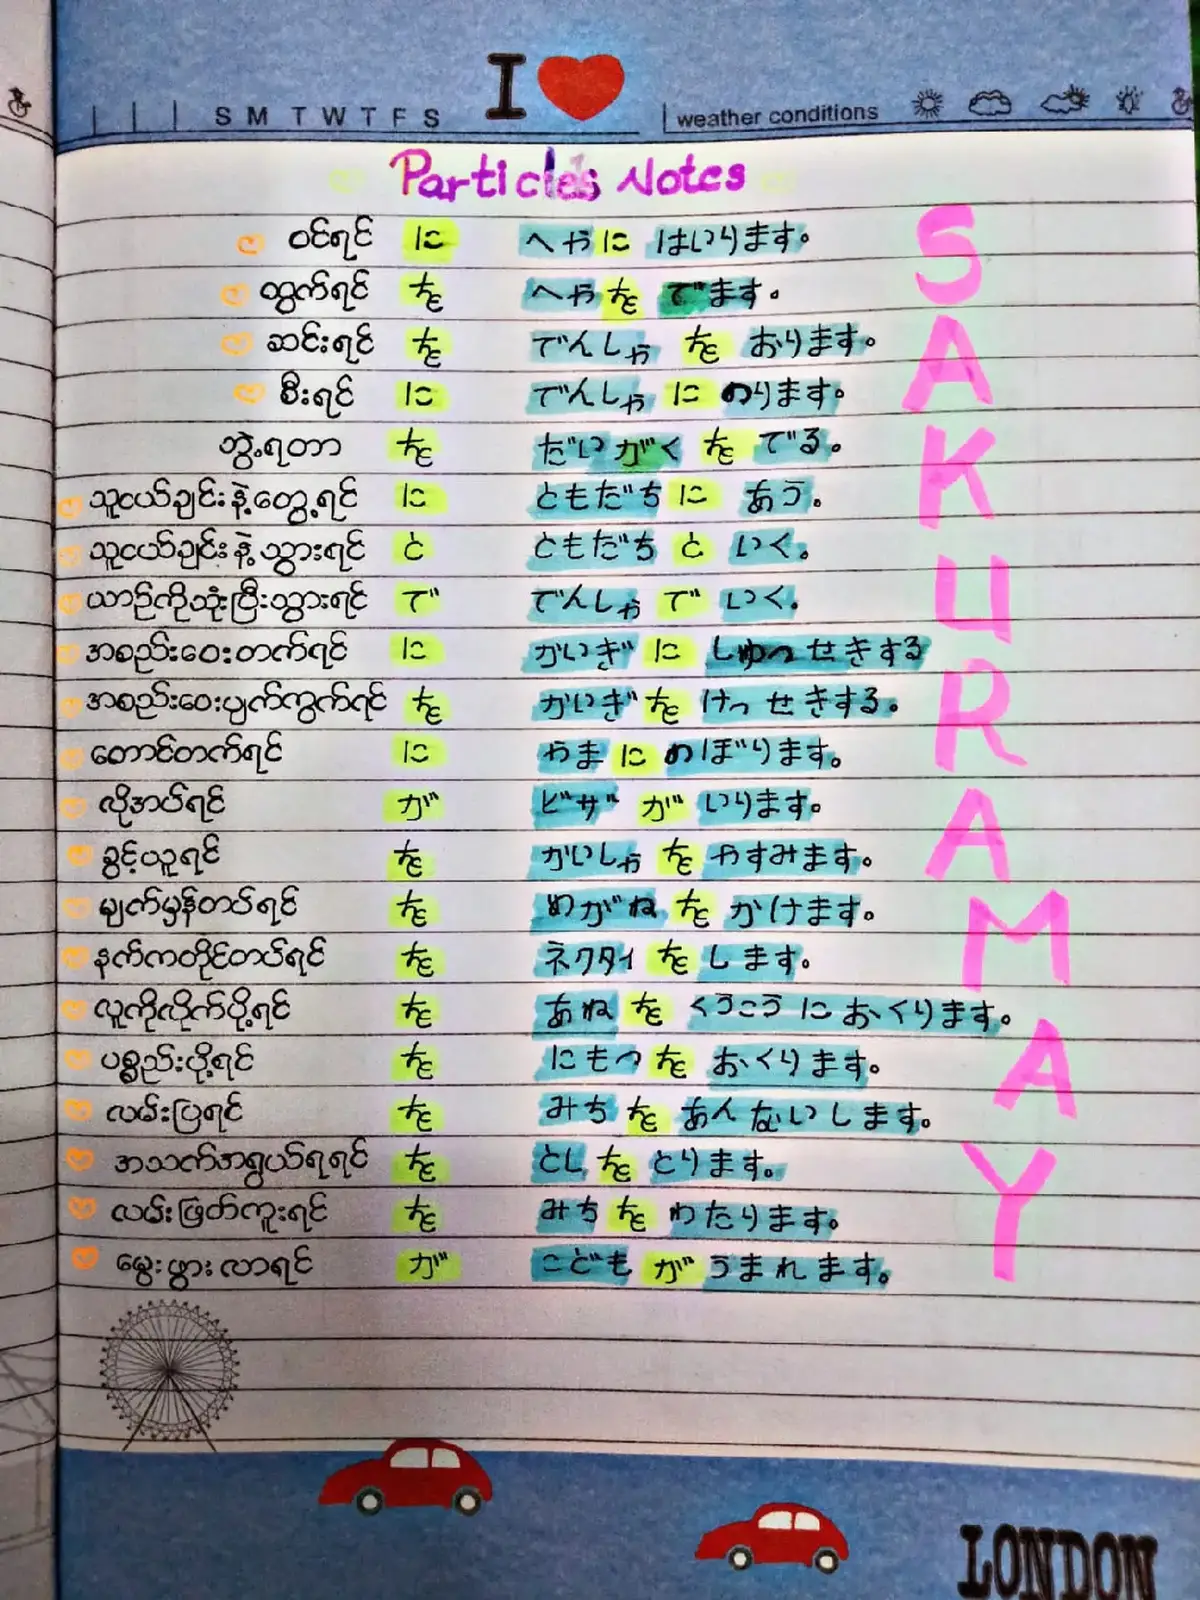 I
S M T W T F S
weather conditions
Particles Notes
ဝင်ရင် に へやに はいります。
ထွက်ရင် を へやを でます。
ဆင်းရင် を でんしゃ を おります。
စီးရင် に でんしゃ に のります。
ဘွဲ့ရတာ を だいがく を でる。
သူငယ်ချင်းနဲ့တွေ့ရင် に ともだち に あう。
သူငယ်ချင်းနဲ့သွားရင် と ともだち と いく。
ယာဉ်ကိုသုံးပြီးသွားရင် で でんしゃ で いく。
အစည်းဝေးတက်ရင် に かいぎ に しゅっせきする
အစည်းဝေးပျက်ကွက်ရင် を かいぎ を けっせきする。
တောင်တက်ရင် に やま に のぼります。
လိုအပ်ရင် が ビザ が いります。
ခွင့်ယူရင် を かいしゃ を やすみます。
မျက်မှန်တပ်ရင် を めがね を かけます。
နက်ကတိုင်တပ်ရင် を ネクタイ を します。
လူကိုလိုက်ပို့ရင် を あね を くうこう に おくります。
ပစ္စည်းပို့ရင် を にもつ を おくります。
လမ်းပြရင် を みち を あんないします。
အသက်အရွယ်ရရင် を とし を とります。
လမ်းဖြတ်ကူးရင် を みち を わたります。
မွေးဖွားလာရင် が こども が うまれます。
SAKURAMAY
LONDON